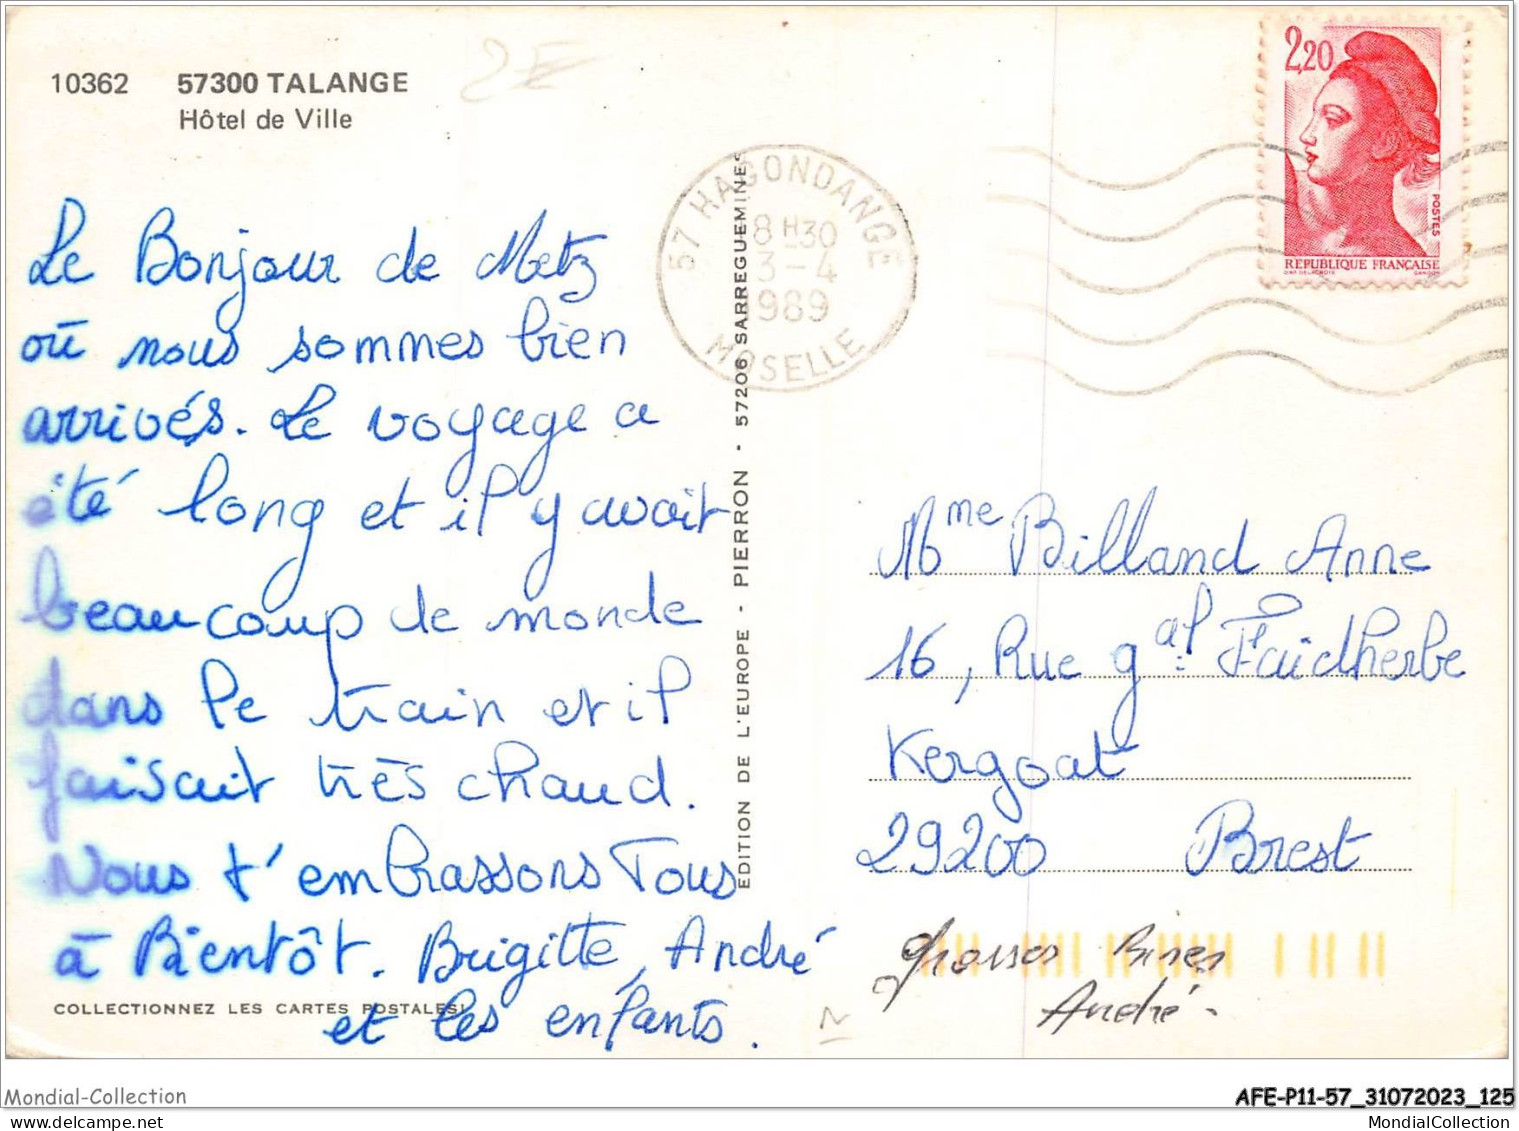 10362 57300 TALANGE
Hôtel de Ville
2E
Le Bonjour de Metz
où nous sommes bien
arrivés. Le voyage a
été long et il y avait
beaucoup de monde
dans le train et il
faisait très chaud.
Nous t'embrassons Tous
à Bientôt. Brigitte, André
et les enfants.
COLLECTIONNEZ LES CARTES POSTALES!
EDITION DE L'EUROPE - PIERRON - 57206 SARREGUEMINES
57 HAGONDANGE
18 H30
3-4
1989
MOSELLE
2,20
POSTES
REPUBLIQUE FRANÇAISE
Mme Billand Anne
16, Rue gal Faidherbe
Kergoat
29200 Brest
grosses Bises
André.
N
Mondial-Collection
AFE-P11-57_31072023_125
MondialCollection